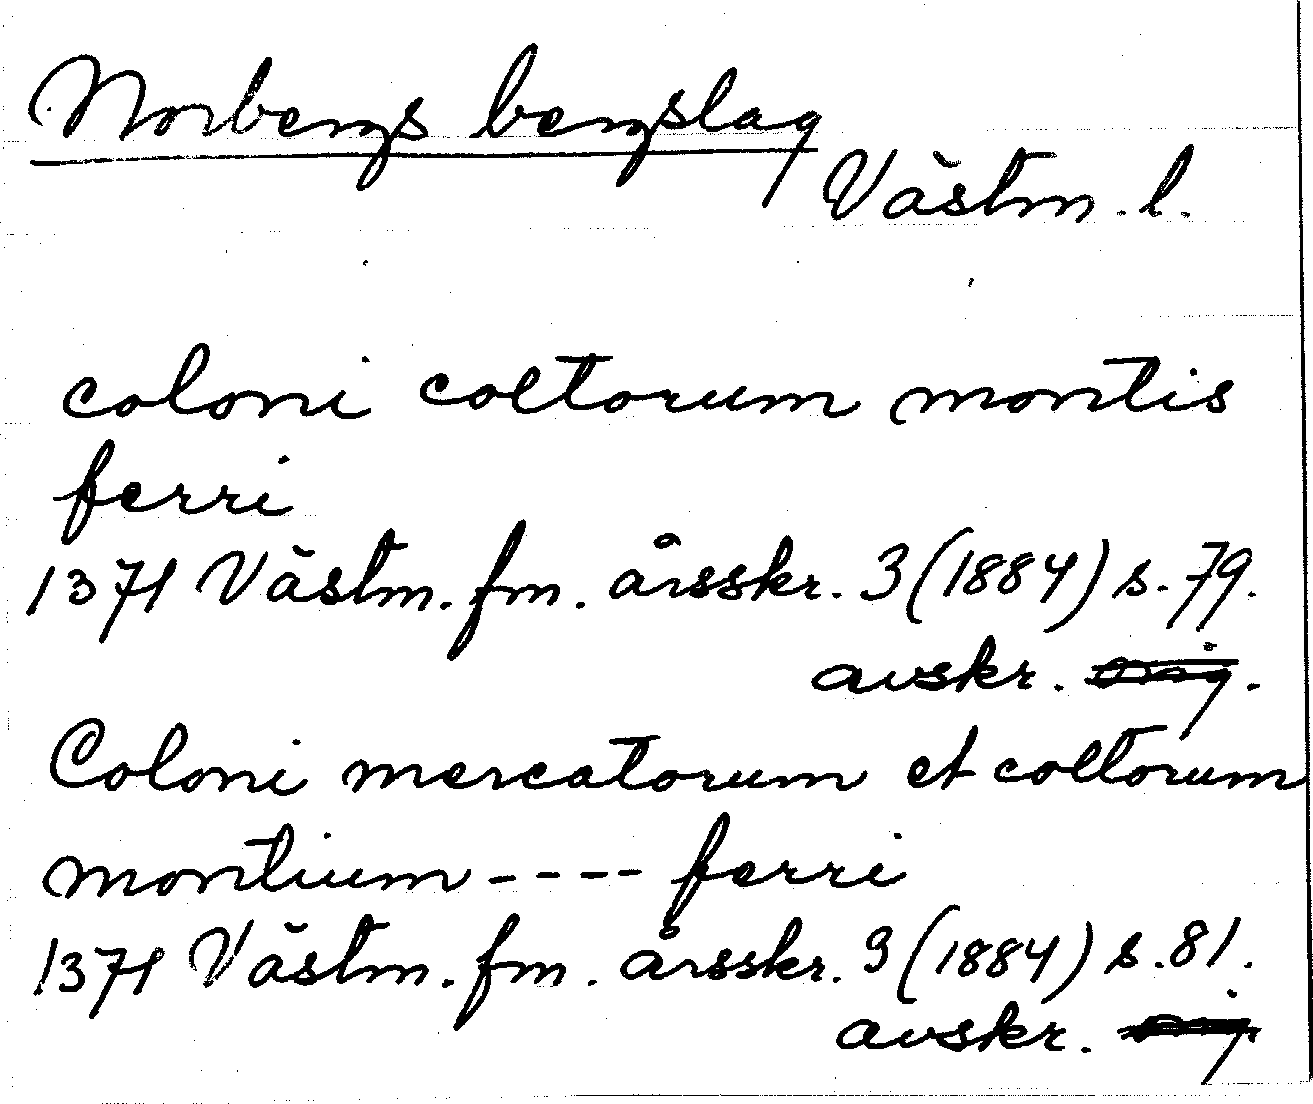 Norbergs bergslag
Västm. l.
coloni coltorum montis
ferri
1371 Västm. fm. årsskr. 3 (1884) s. 79.
avskr. orig.
Coloni mercatorum et coltorum
montium ---- ferri
1371 Västm. fm. årsskr. 3 (1884) s. 81.
avskr. orig